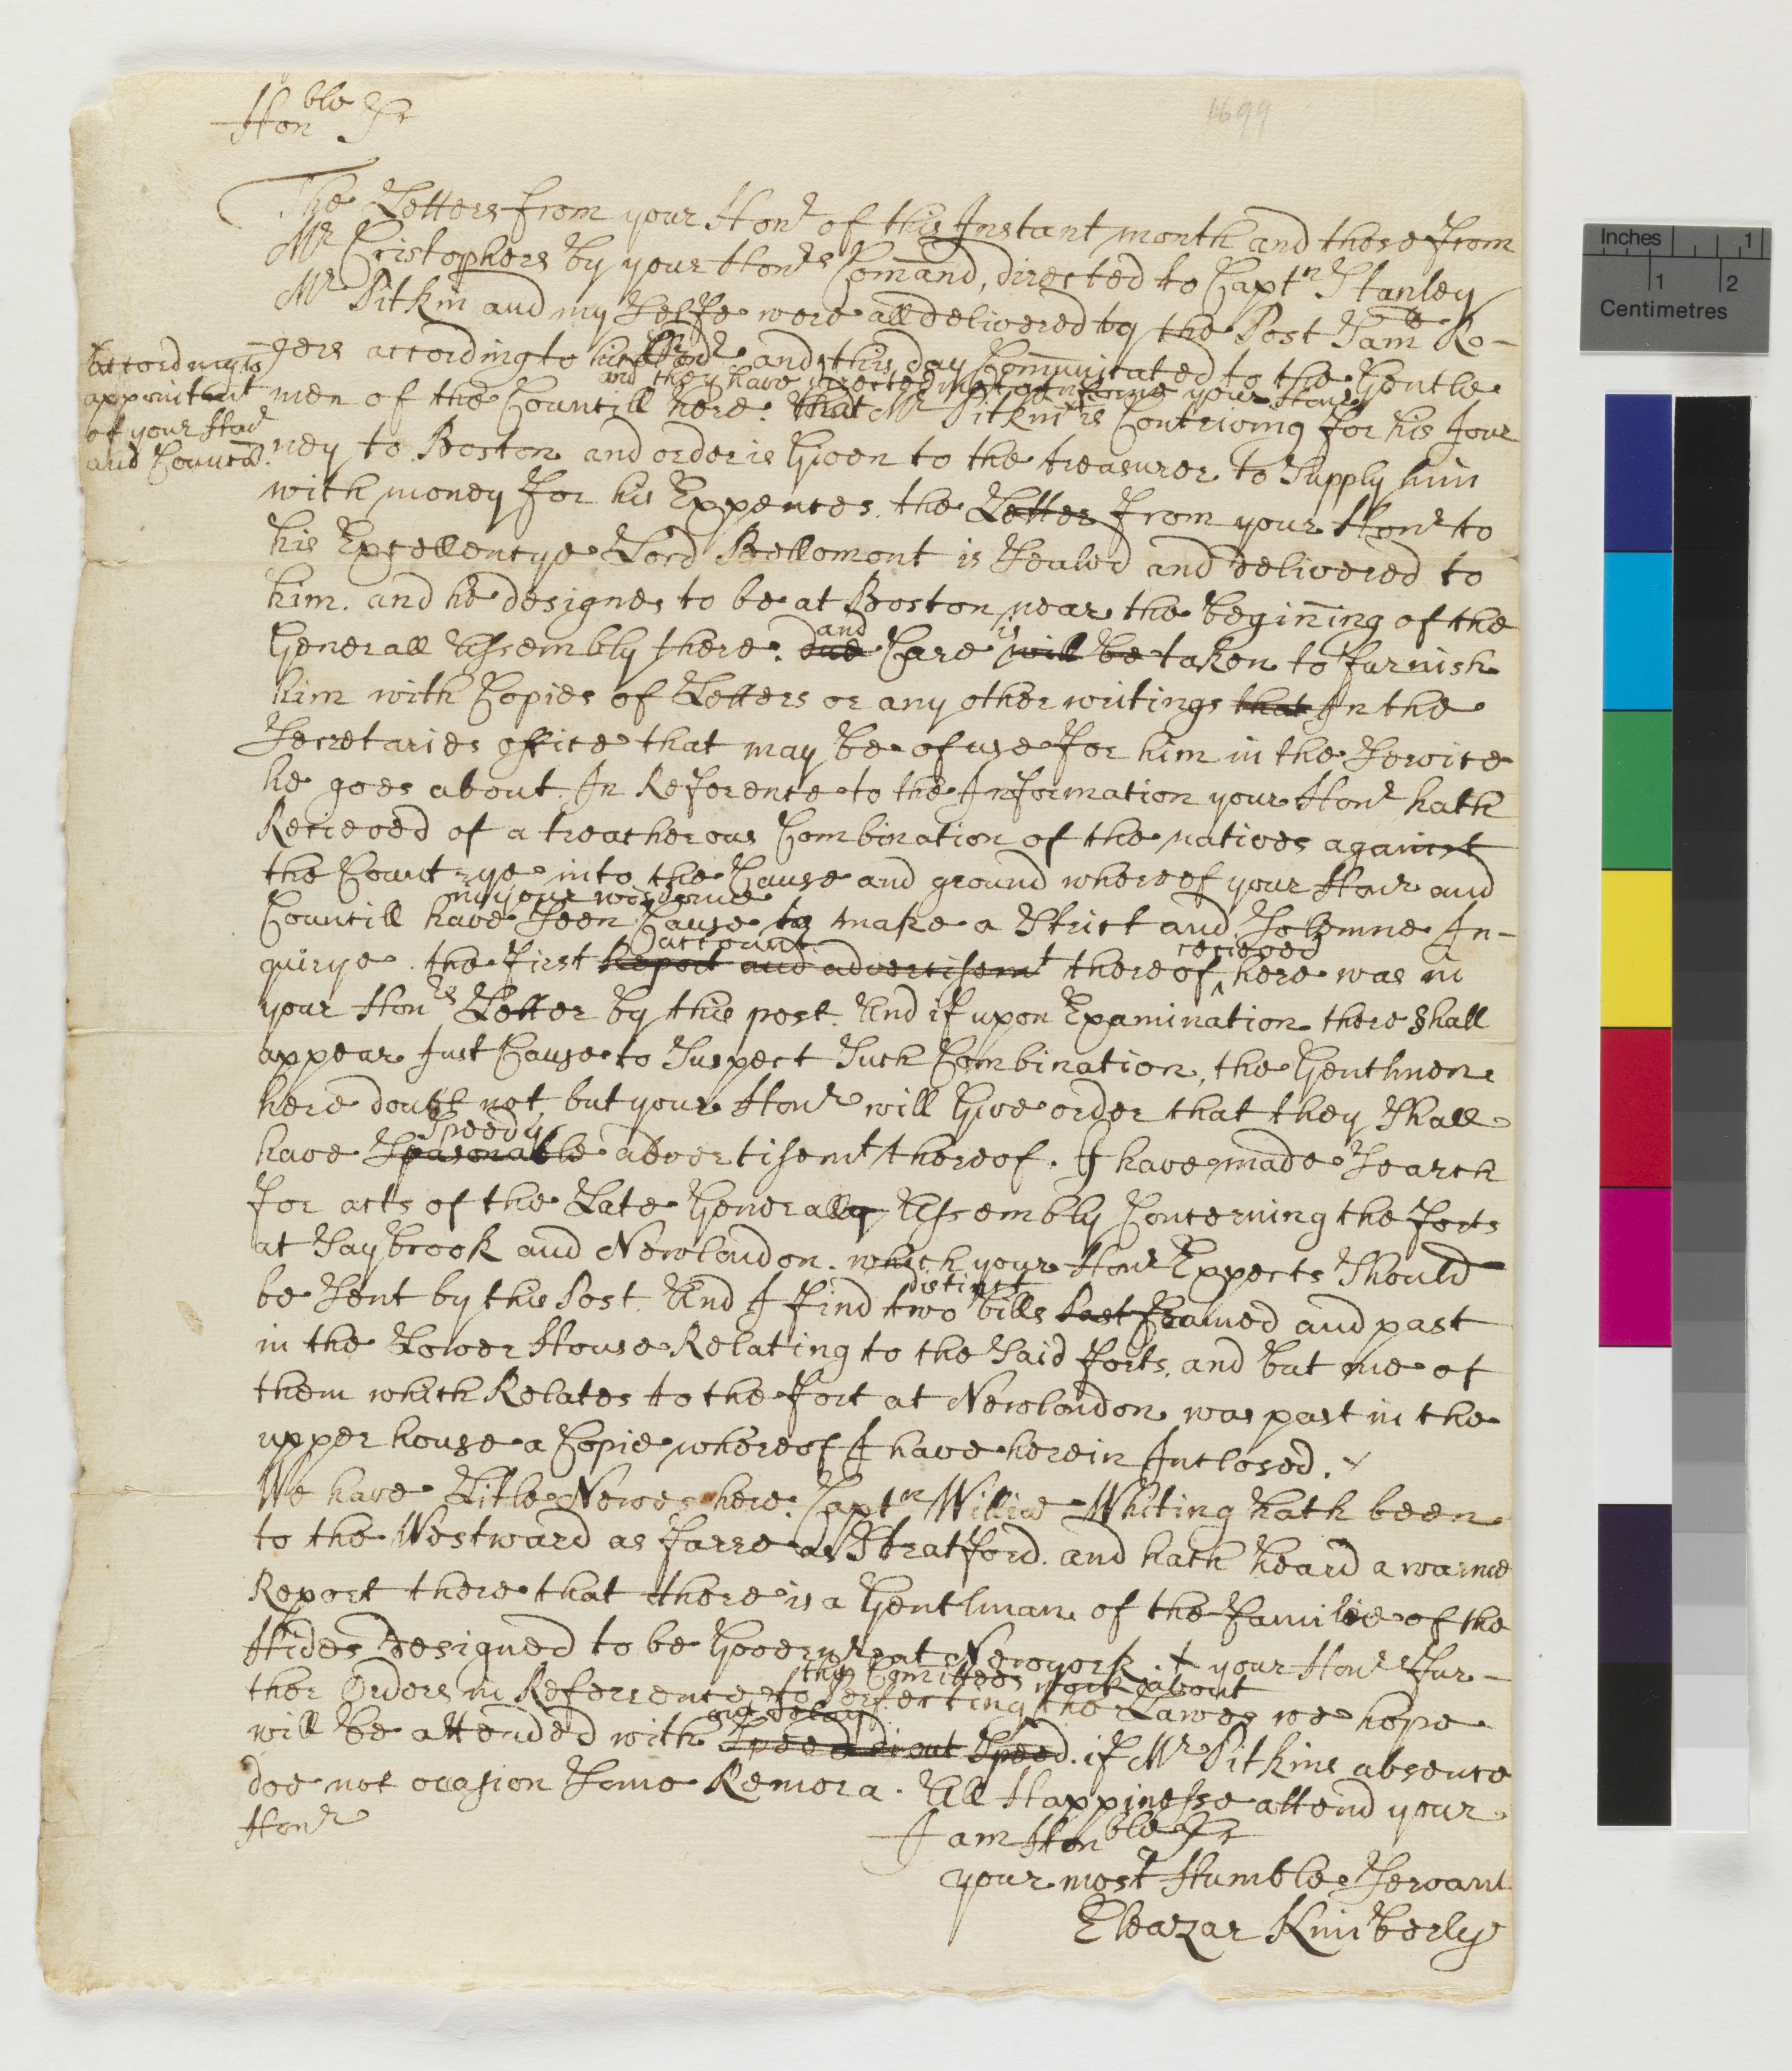 1699
Honble Sr
The Letters from your Honr of this Instant month and those from
Mr Cristophers by your Honrs Comand, directed to Captn Stanley
Mr Pitkin and my Selfe were all delivered by the Post Saml Ro-
gers according to his Ordr and this day Comunicated to the Gentle
and they have directed me to informe your Honr
men of the Councill here. that Mr Pitkin is Contriving for his Jour
according to
appointmt
of your Honr
and Councill.
ney to Boston and order is Given to the treasurer to Supply him
with money for his Expences. the Letter from your Honr to
his Excellencye Lord Bellomont is Sealed and delivered to
him. and he designes to be at Boston near the begining of the
and is
Generall Assembly there. due Care will be taken to furnish
him with Copies of Letters or any other writings that In the
Secretaries office that may be of use for him in the Service
he goes about. In Reference to the Information your Honr hath
Recieved of a treacherous Combination of the natives against
the Countrye into the Cause and ground whereof your Honr and
in your wisdome
Councill have Seen Cause to make a Strict and Solemne In-
account recieved
quirye. the first Report and advertisemt thereof ^ here was in
your Honrs Letter by this post. And if upon Examination there Shall
appear Just Cause to Suspect Such Combination, the Gentlmen
here doubt not but your Honr will Give order that they Shall
Speedy
have Seasonable advertisemt thereof. I have made Search
for acts of the Late Generall Assembly Concerning the forts
at Saybrook and Newlondon. which your Honr Expects Should
distinct
be Sent by this Post. And I find two bills Past framed and past
in the Lower House Relating to the Said forts. and but one of
them which Relates to the fort at Newlondon was past in the
upper house a Copie whereof I have herein Inclosed.
We have Litle Newes here. Captn Willm Whiting hath been
to the Westward as farre as Stratford. and hath heard a warme
Report there that there is a Gentlman of the familie of the
Hides Designed to be Governr at Newyork. your Honrs Fur-
the Comittees work about
ther Orders in Referrence to perfecting the Lawes we hope
out delay
will be attended with Speed. if Mr Pitkins absence
doe not ocasion Some Remora. All Happinesse attend your
Honr
I am Honble Sr
your most Humble Servant
Eleazar Kimberly